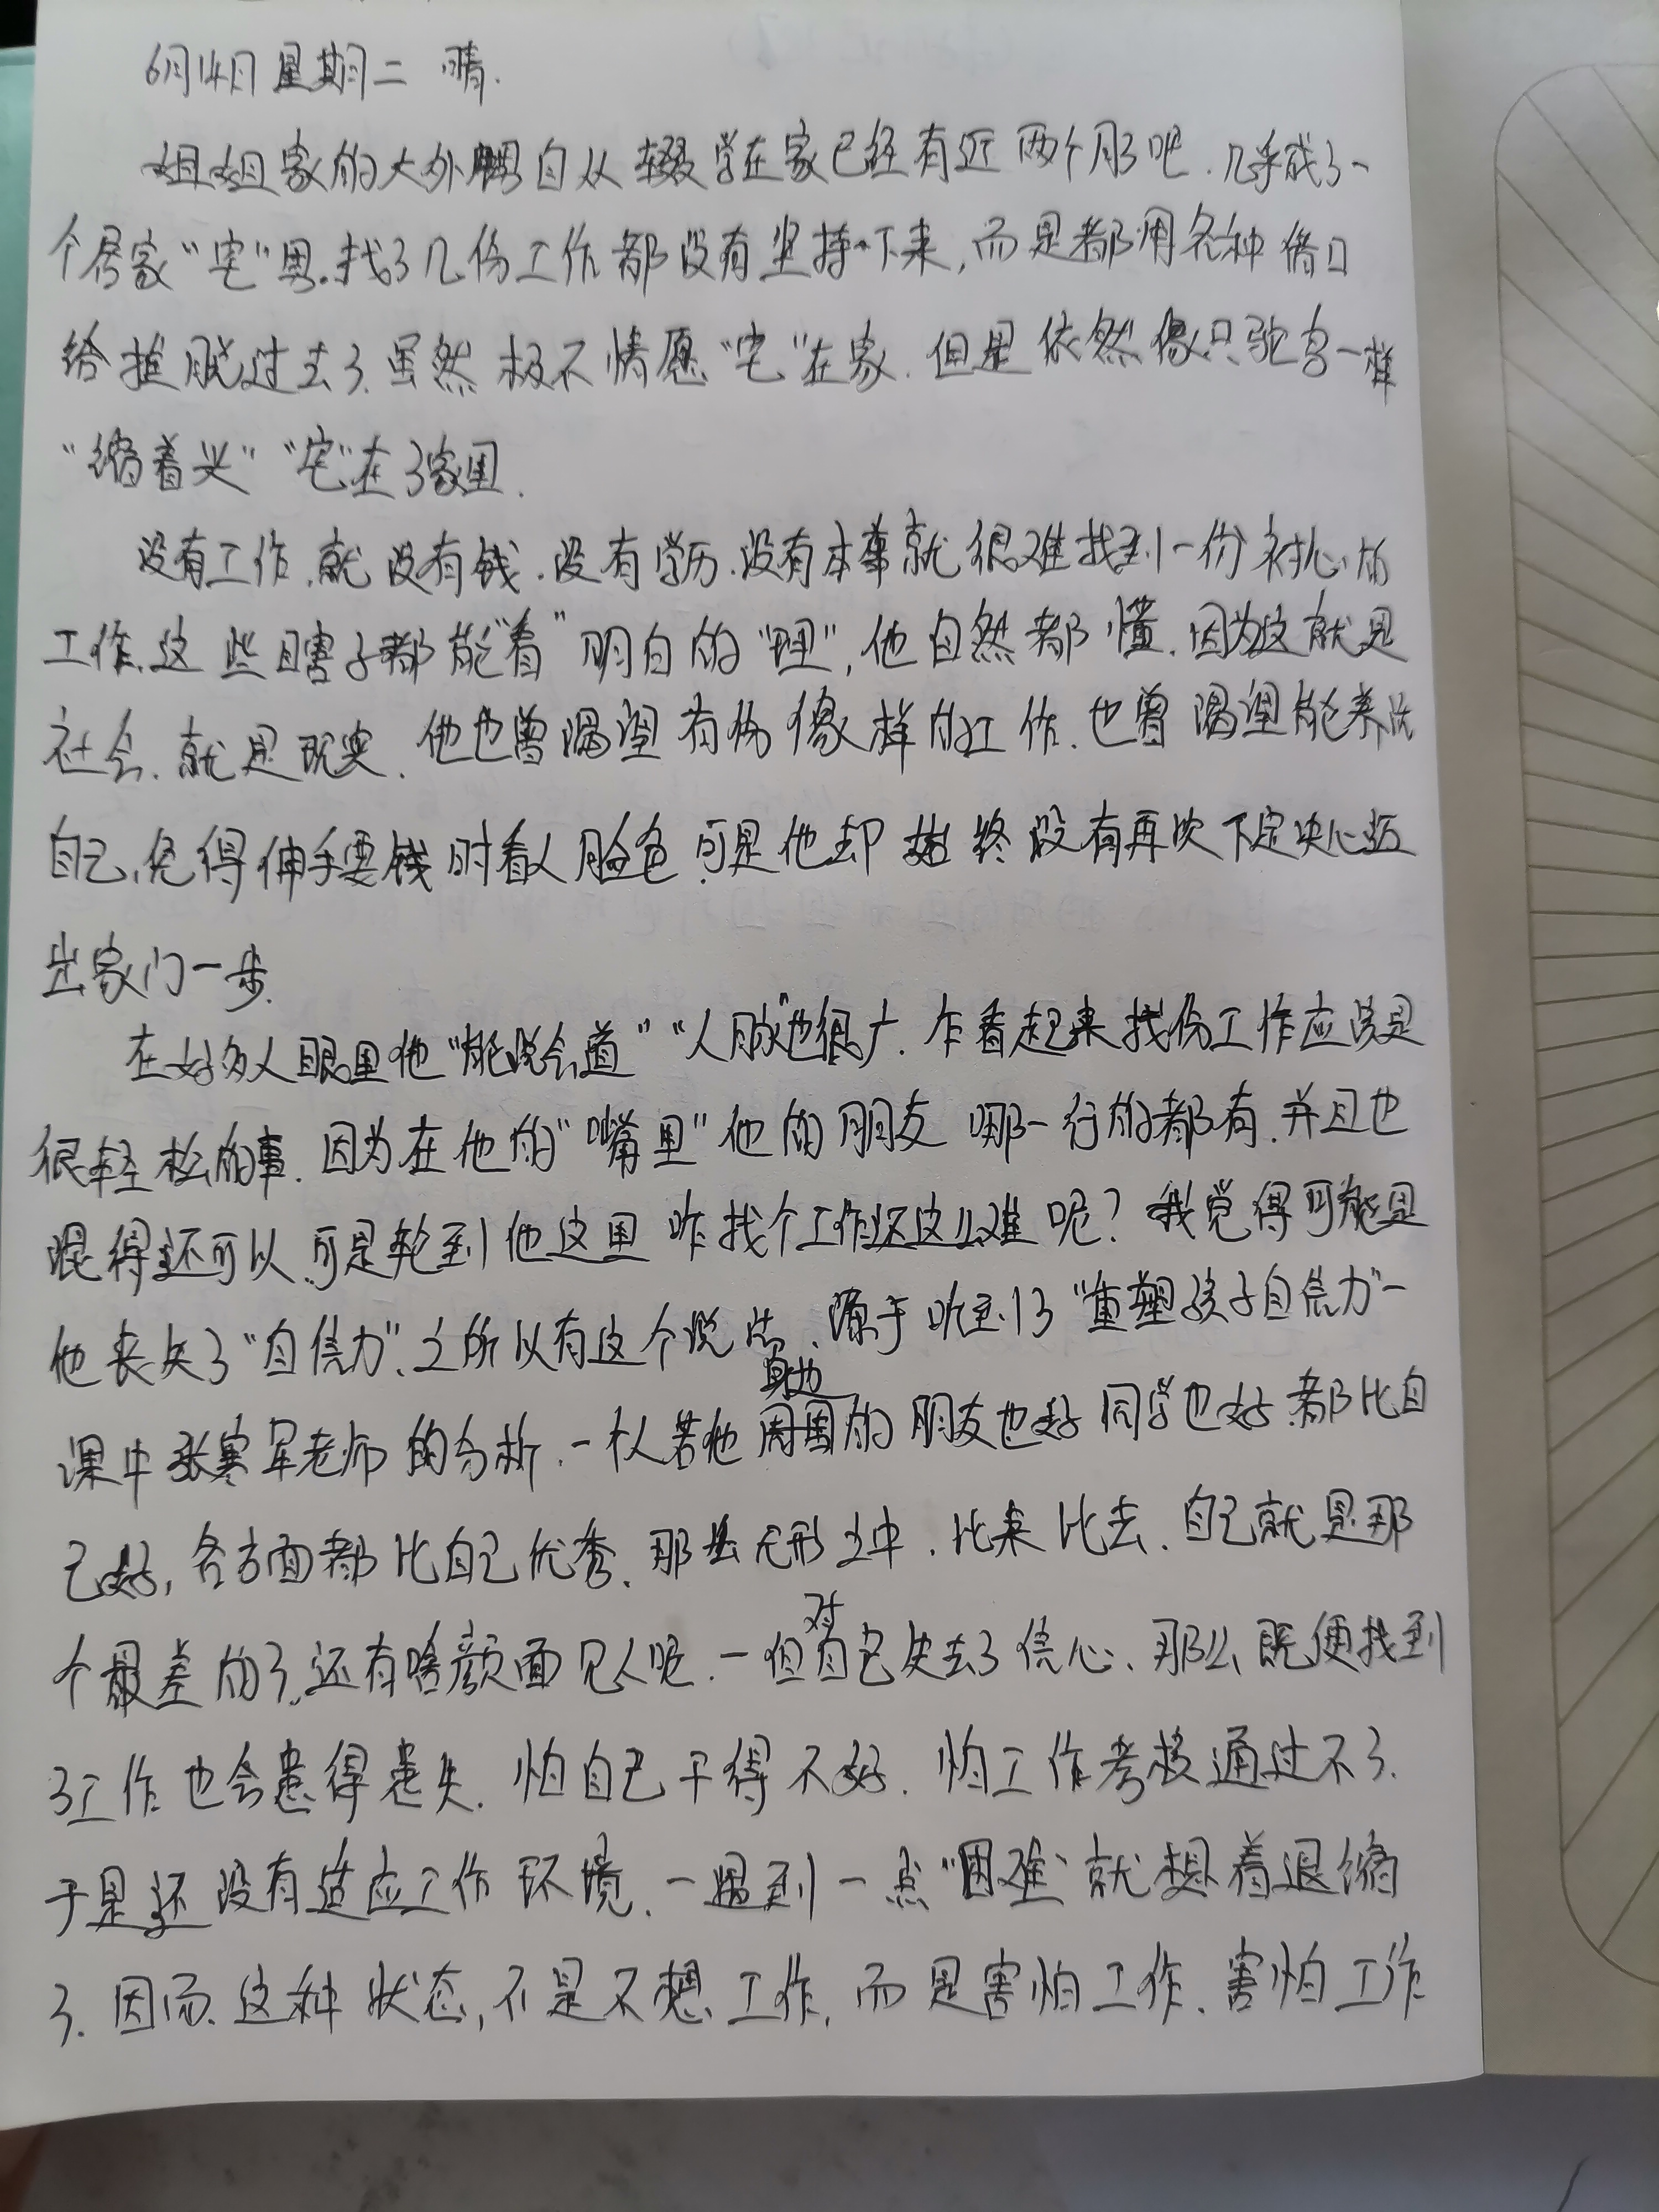 6月14日 星期二 晴.
姐姐家的大外甥自从辍学在家已经有近两个月了吧.几乎成了一
个居家"宅"男.找了几份工作都没有坚持下来,而是都用各种借口
给推脱过去了.虽然极不情愿"宅"在家.但是依然像只鸵鸟一样
"缩着头""宅"在了家里.
没有工作.就没有钱.没有学历.没有本事就很难找到一份称心的
工作.这些瞎子都能"看"明白的"理",他自然都懂.因为这就是
社会.就是现实.他也曾渴望有份像样的工作.也曾渴望能养活
自己,免得伸手要钱时看人脸色.可是他却始终没有再次下定决心迈
出家门一步.
在好多人眼里他"能说会道""人脉"也很广.乍看起来找份工作应该是
很轻松的事.因为在他的"嘴里"他的朋友哪一行的都有.并且也
混得还可以.可是轮到他这里咋找个工作还这么难呢?我觉得可能是
他丧失了"自信力".之所以有这个说法.源于听到了"重塑孩子自信力"一
课中张寒军老师的分析.一个人若他身边的朋友也好同学也好.都比自
己好,各方面都比自己优秀.那么无形之中.比来比去.自己就是那
个最差的了.还有啥颜面见人呢.一但对自己失去了信心.那么既便找到
了工作也会患得患失.怕自己干得不好.怕工作考核通过不了.
于是还没有适应工作环境.一遇到一点"困难"就想着退缩
了.因而.这种状态,不是不想工作,而是害怕工作.害怕工作